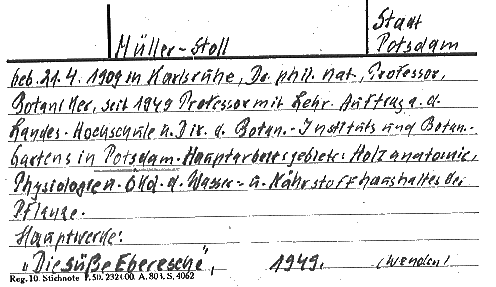 Stadt
Müller-Stoll Potsdam
geb. 21.4. 1909 in Karlsruhe, Dr. phil. nat., Professor,
Botaniker, seit 1949 Professor mit Lehr-Auftrag a. d.
Landes-Hochschule u. Dir. d. Botan.-Instituts und Botan.-
Gartens in Potsdam. Hauptarbeitsgebiete: Holzanatomie,
Physiologie u. Ökol. d. Wasser- u. Nährstoffhaushaltes der
Pflanze.
Hauptwerke:
"Die süße Eberesche", 1949. (wenden!)
Reg. 10. Stichnote A. 803. S. 4062